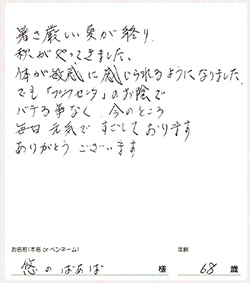 暑さ厳しい夏が終り
秋がやってきました。
体が敏感に感じられるようになりました。
でも「プラセンタ」のお陰で
バテる事なく 今のところ
毎日 元気で すごして おります
ありがとう ございます
お名前(本名 or ペンネーム)
年齢
悠のばあば 様 68 歳